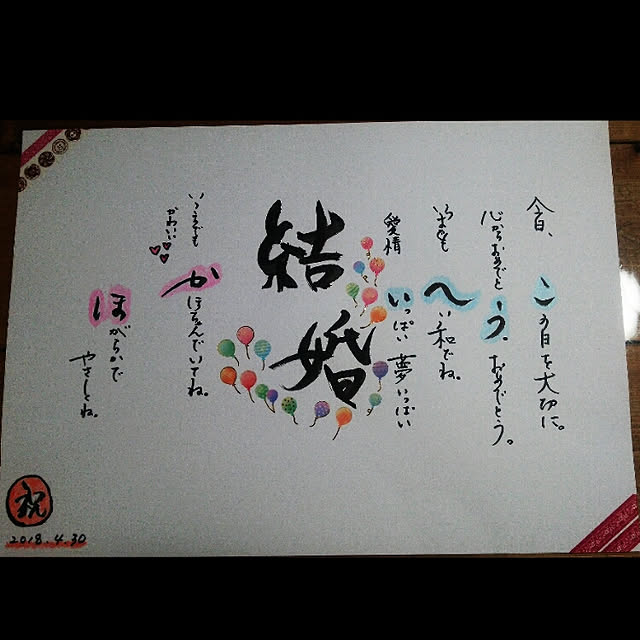 今日、この日を大切に。
心からおめでとう、おめでとう。
いつまでもへい和でね。
愛情いっぱい夢いっぱい
結婚
いつまでも
かわいい
かほちゃんでいてね。
ほがらかで
やさしくね。
祝
2018.4.30